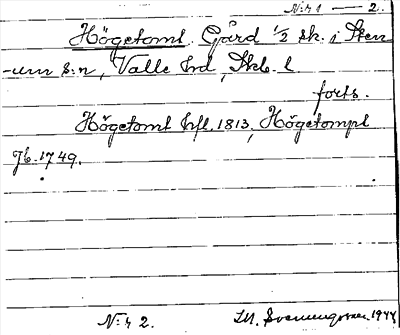 N:r 1 — 2.
Högetomt. Gård 1/2 sk. i Sten
-um s:n, Valle hd, Skb. l
forts.
Högetomt hfl. 1813, Högetompt
Jb. 1749.
N:r 2. 1944